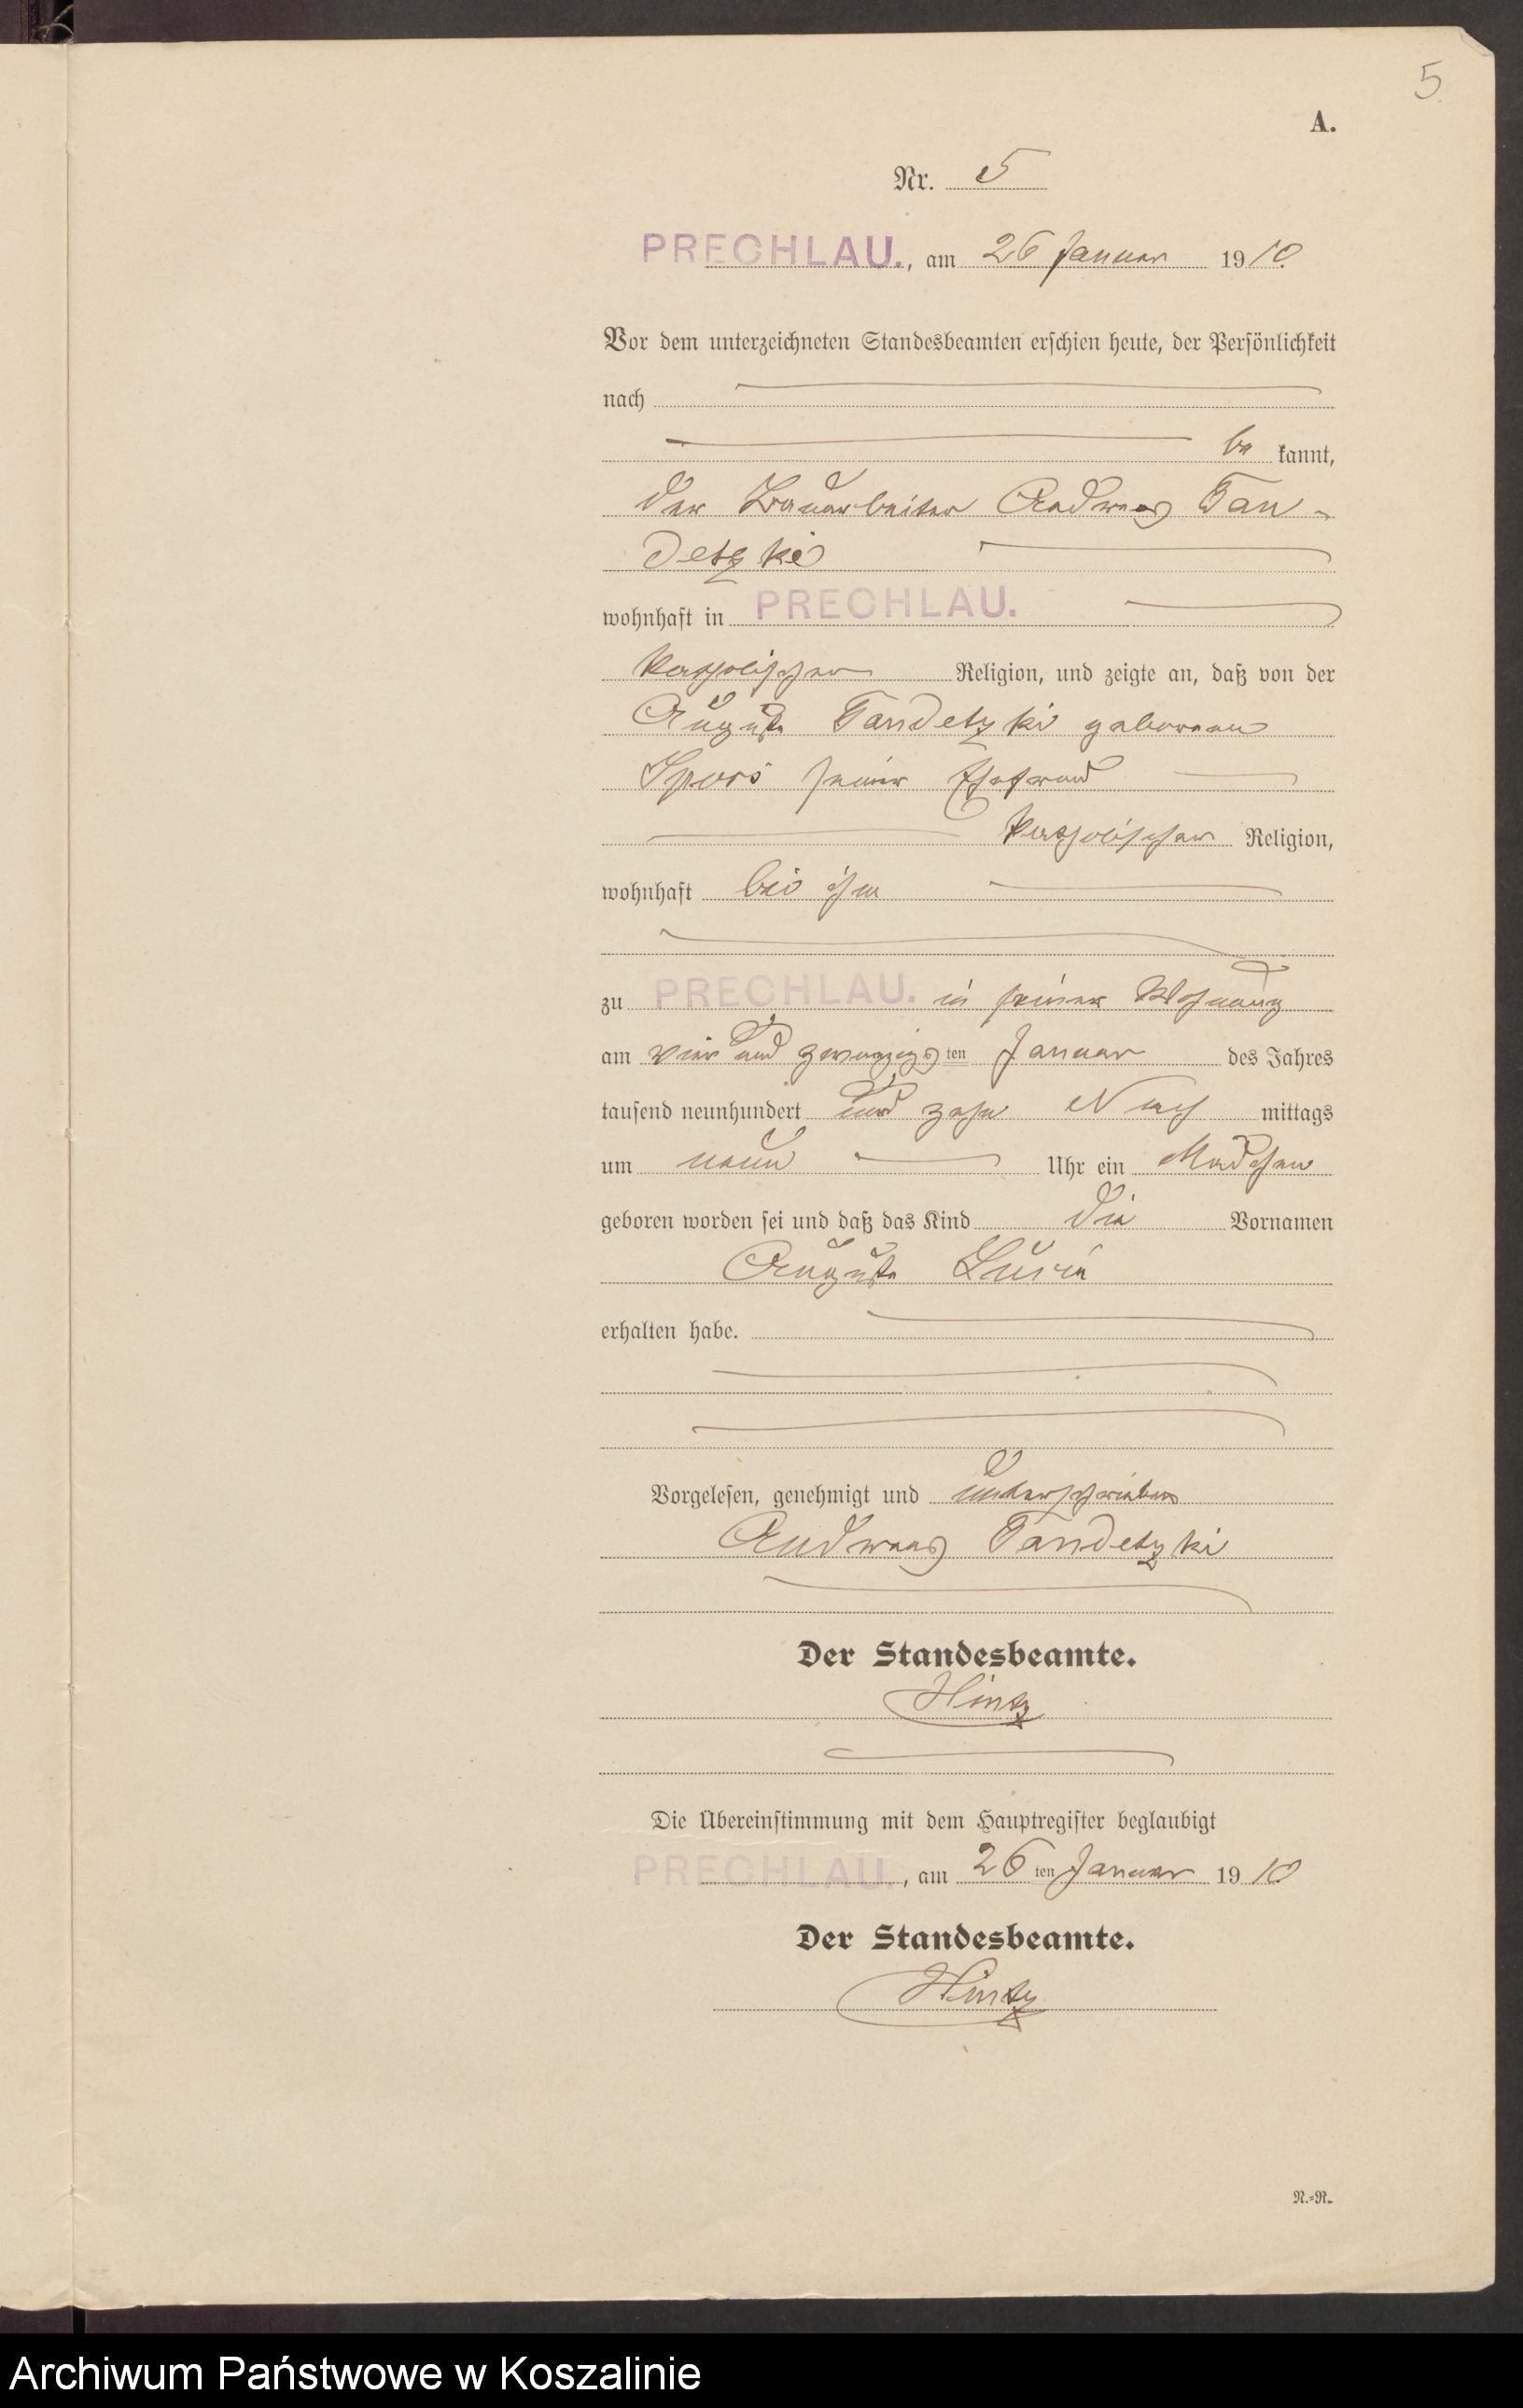 5
A.
Nr. 5
PRECHLAU., am 26 Januar 1910.
Vor dem unterzeichneten Standesbeamten erschien heute, der Persönlichkeit
nach
be kannt,
der Bauarbeiter Andreas Tan-
detzki
wohnhaft in PRECHLAU.
katholischer Religion, und zeigte an, daß von der
Auguste Tandetzki geborenen
Spors seiner Ehefrau
katholischer Religion,
wohnhaft bei ihm
zu PRECHLAU. in seiner Wohnung
am vier und zwanzigsten Januar des Jahres
tausend neunhundert und zehn Nach mittags
um neun Uhr ein Mädchen
geboren worden sei und daß das Kind die Vornamen
Auguste Lucia
erhalten habe.
Vorgelesen, genehmigt und unterschrieben
Andreas Tandetzki
Der Standesbeamte.
Hintz
Die Übereinstimmung mit dem Hauptregister beglaubigt
PRECHLAU., am 26 ten Januar 1910
Der Standesbeamte.
Hintz
N.=R.
Archiwum Państwowe w Koszalinie